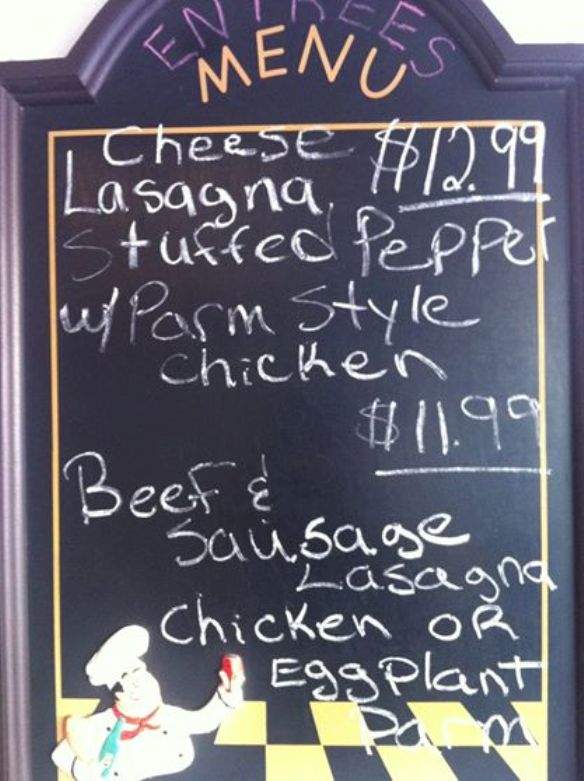 ENTREES
MENU
Cheese $12.99
Lasagna
Stuffed Pepper
w/ Parm Style
chicken
$11.99
Beef &
Sausage
Lasagna
Chicken OR
EggPlant
Parm